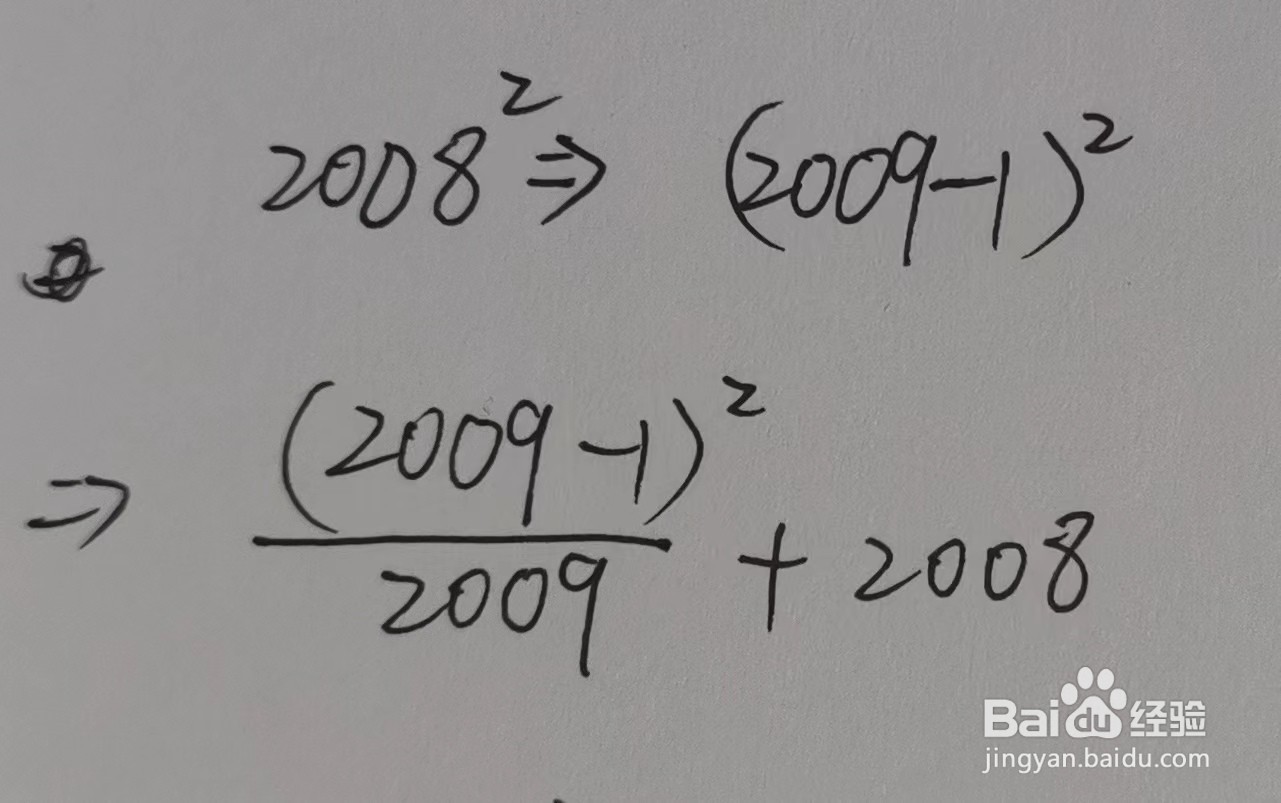 2008² ⇒ (2009-1)²
⇒ (2009-1)²/2009 + 2008
Bai du 经验
jingyan.baidu.com